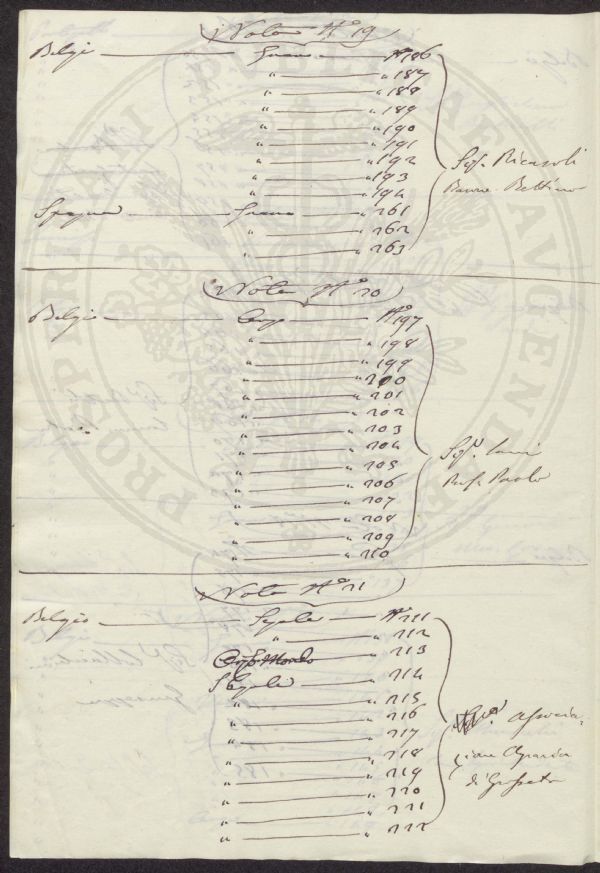 Nota N° 19
Belgio Grano N° 186
" " 187
" " 188
" " 189
" " 190
" " 191
" " 192
" " 193
" " 194
Sig. Ricasoli
Barone Bettino
Spagna Grano " 261
" " 262
" " 263
Nota N° 20
Belgio Orzo N° 197
" " 198
" " 199
" " 200
" " 201
" " 202
" " 203
" " 204
" " 205
" " 206
" " 207
" " 208
" " 209
" " 210
Sig. Savi
Prof. Paolo
Nota N° 21
Belgio Segale N° 211
" " 212
Orzo Mondo " 213
Segale " 214
" " 215
" " 216
" " 217
" " 218
" " 219
" " 220
" " 221
" " 222
Associa=
zione Agraria
di Grosseto
PROSPERITATI PVBLICAE AVGENDAE